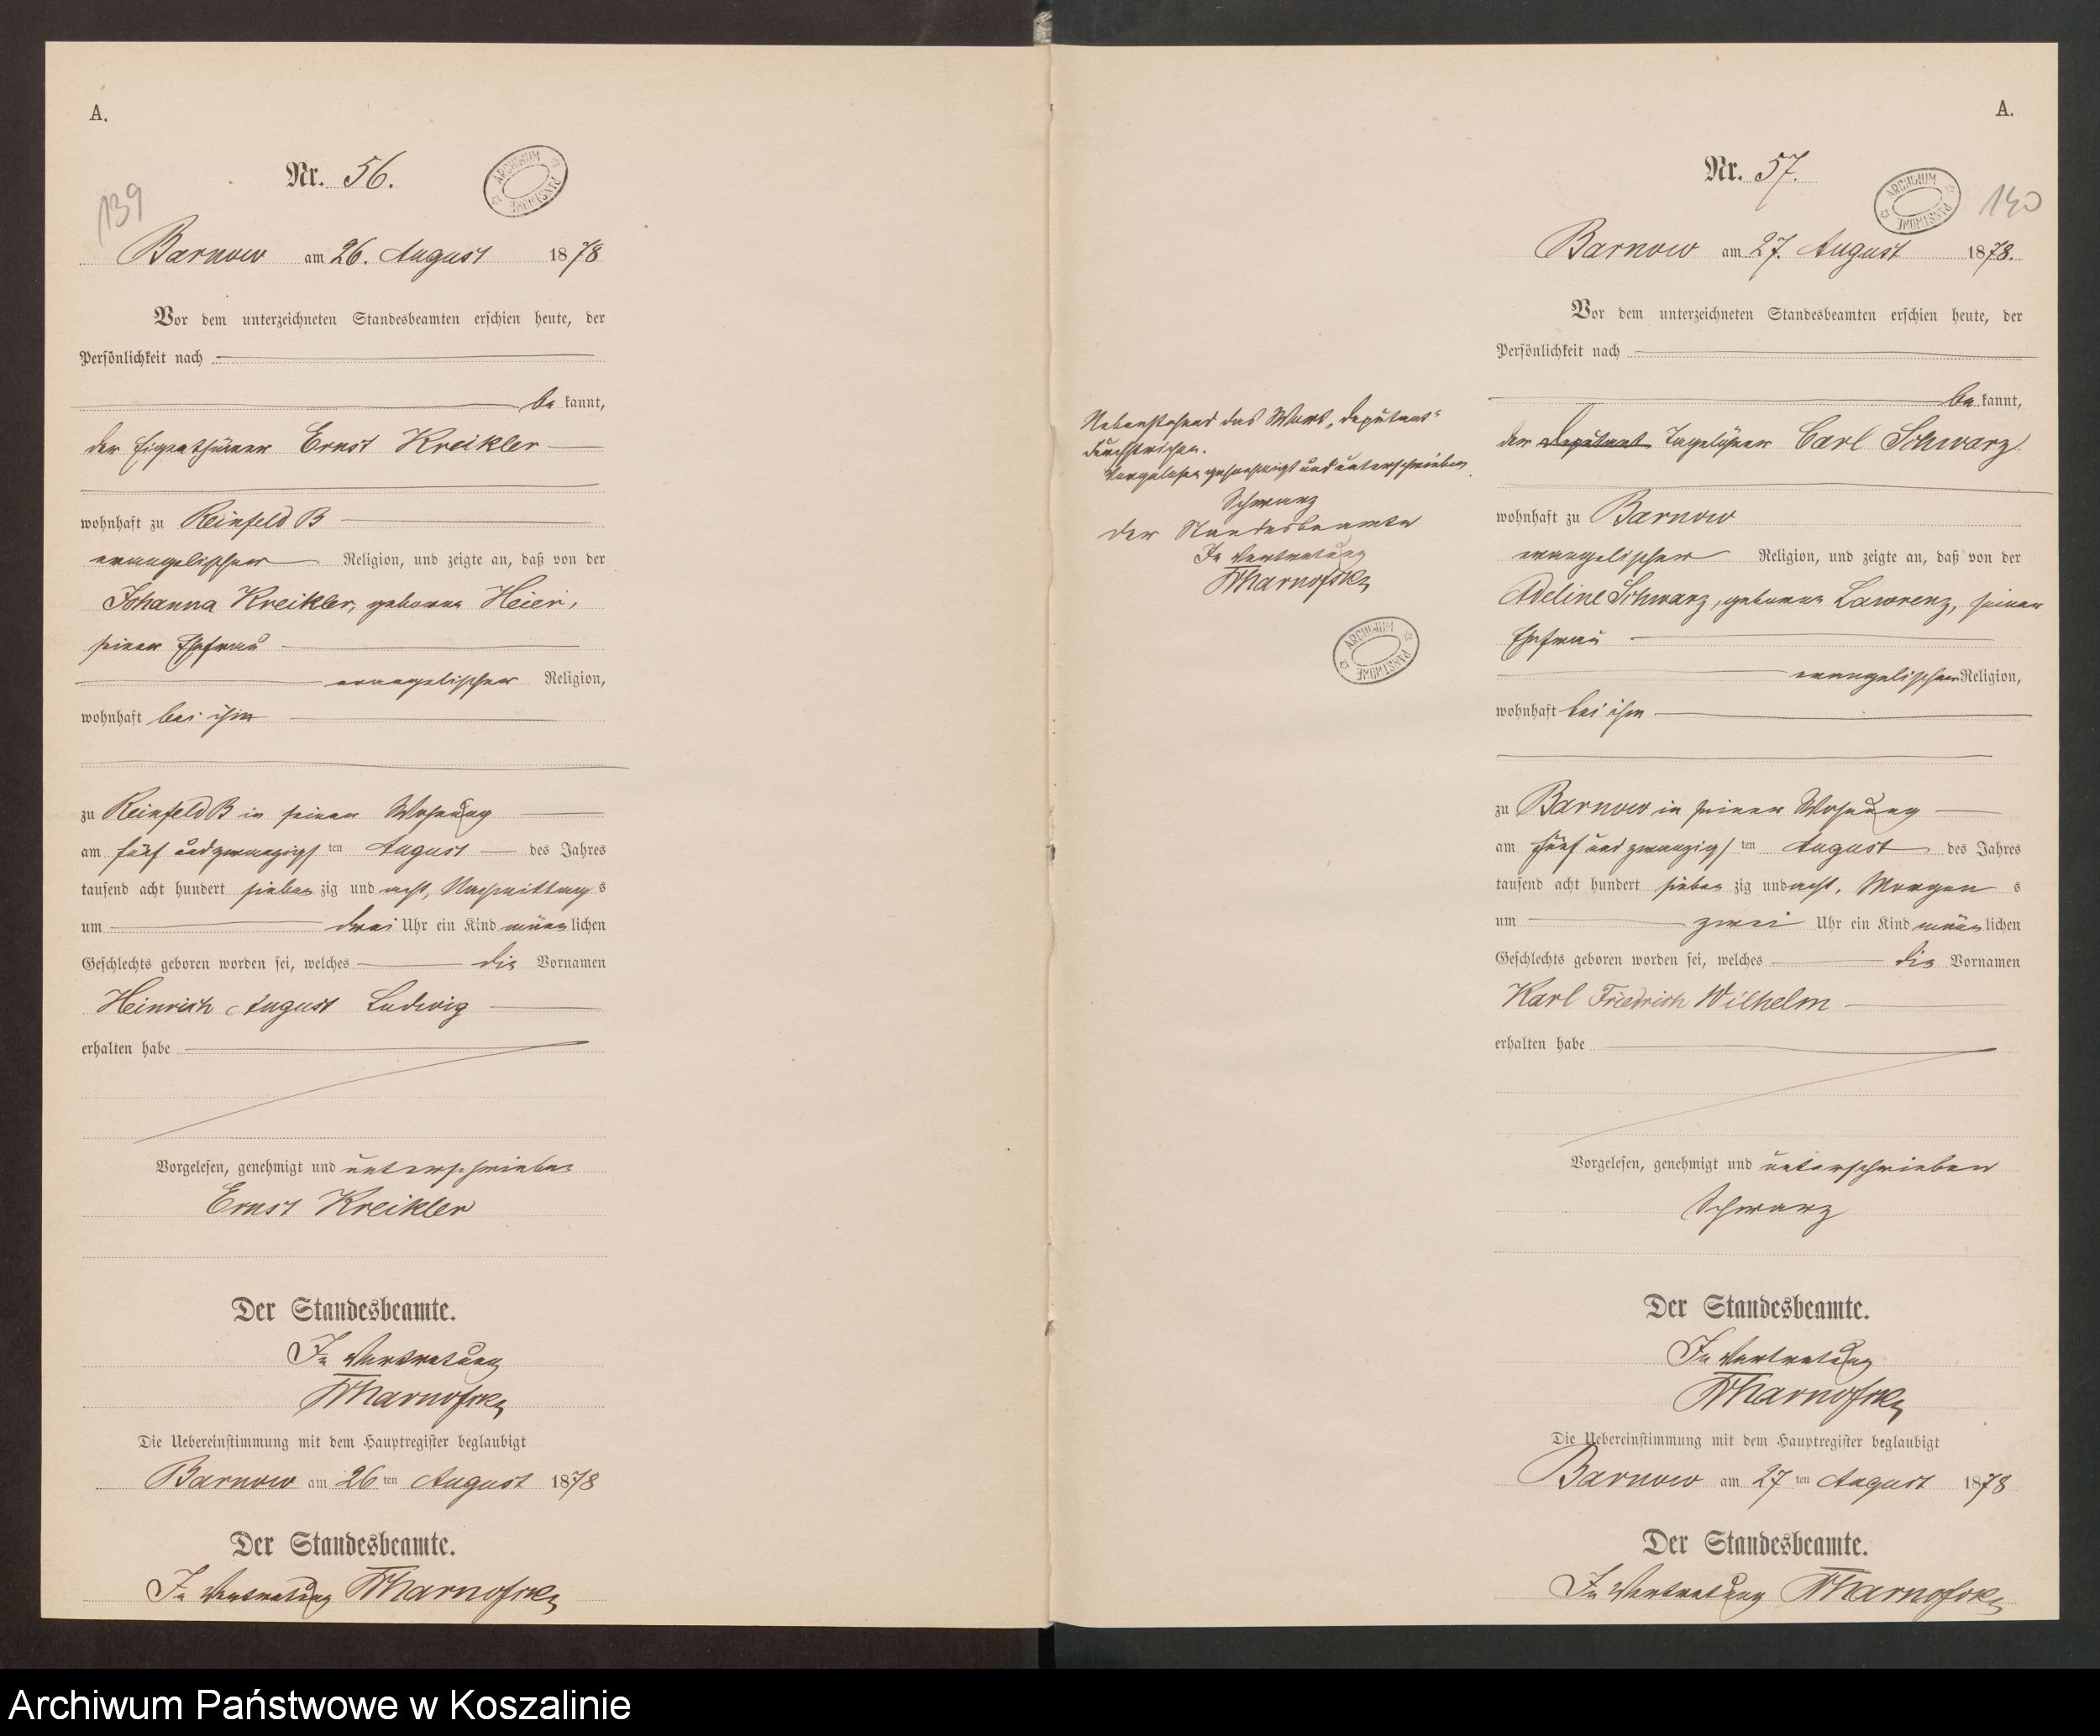 A.
Nr. 56.
ARCHIWUM PAŃSTWOWE
139
Barnow am 26. August 1878
Vor dem unterzeichneten Standesbeamten erschien heute, der
Persönlichkeit nach
be kannt,
der Eigenthümer Ernst Kreikler
wohnhaft zu Reinfeld B
evangelischer Religion, und zeigte an, daß von der
Johanna Kreikler, geborne Heier,
seiner Ehefrau
evangelischer Religion,
wohnhaft bei ihm
zu Reinfeld B in seiner Wohnung
am fünf und zwanzigsten August des Jahres
tausend acht hundert sieben zig und acht, Nachmittags
um drei Uhr ein Kind männlichen
Geschlechts geboren worden sei, welches die Vornamen
Heinrich August Ludwig
erhalten habe
Vorgelesen, genehmigt und unterschrieben
Ernst Kreikler
Der Standesbeamte.
In Vertretung
Die Uebereinstimmung mit dem Hauptregister beglaubigt
Barnow am 26 ten August 1878
Der Standesbeamte.
In Vertretung
Nebenstehend das Wort „Deputant“
durchstrichen.
Vorgelesen genehmigt und unterschrieben
Schwarz
Der Standesbeamte
In Vertretung
ARCHIWUM PAŃSTWOWE
A.
Nr. 57.
ARCHIWUM PAŃSTWOWE
140
Barnow am 27. August 1878.
Vor dem unterzeichneten Standesbeamten erschien heute, der
Persönlichkeit nach
be kannt,
der Deputant Tagelöhner Carl Schwarz
wohnhaft zu Barnow
evangelischer Religion, und zeigte an, daß von der
Adeline Schwarz, geborne Lawrenz, seiner
Ehefrau
evangelischer Religion,
wohnhaft bei ihm
zu Barnow in seiner Wohnung
am fünf und zwanzigsten August des Jahres
tausend acht hundert sieben zig und acht, Morgen s
um zwei Uhr ein Kind männlichen
Geschlechts geboren worden sei, welches die Vornamen
Karl Friedrich Wilhelm
erhalten habe
Vorgelesen, genehmigt und unterschrieben
Schwarz
Der Standesbeamte.
In Vertretung
Die Uebereinstimmung mit dem Hauptregister beglaubigt
Barnow am 27 ten August 1878
Der Standesbeamte.
In Vertretung
Archiwum Państwowe w Koszalinie